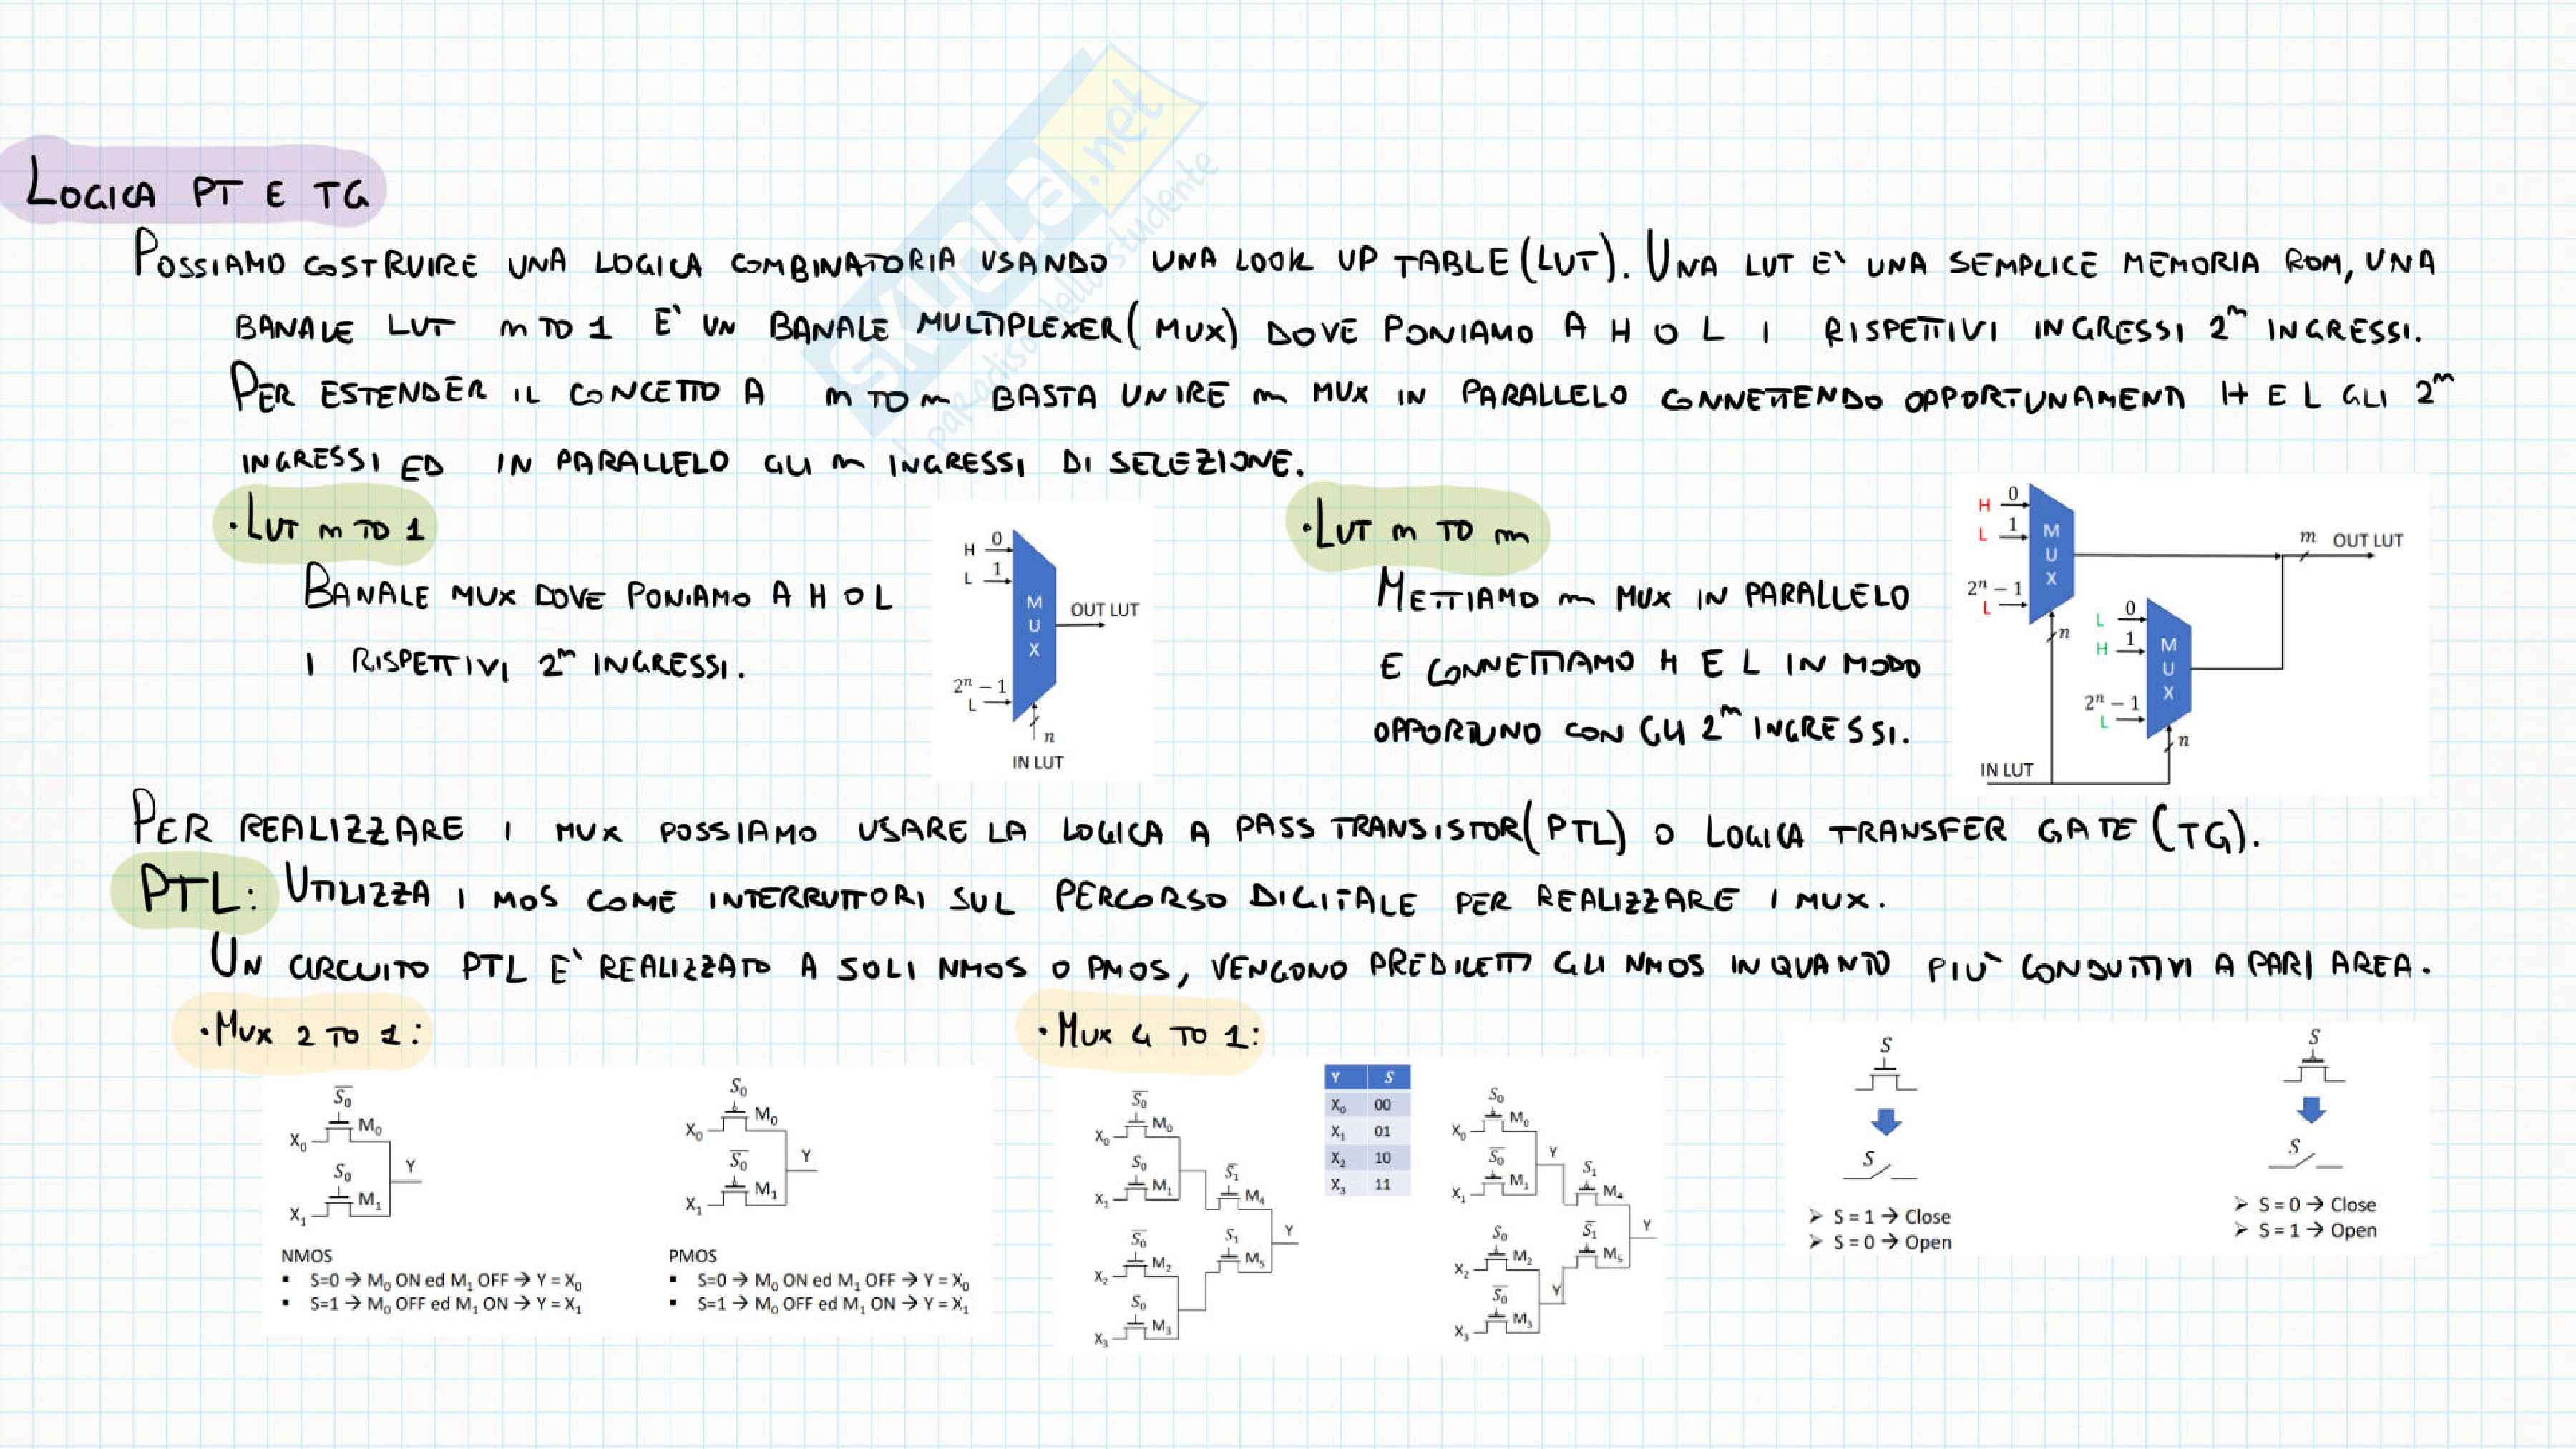 LOGICA PT E TG
POSSIAMO COSTRUIRE UNA LOGICA COMBINATORIA USANDO UNA LOOK UP TABLE (LUT). UNA LUT E` UNA SEMPLICE MEMORIA ROM, UNA
BANALE LUT n TO 1 E` UN BANALE MULTIPLEXER (MUX) DOVE PONIAMO A H O L I RISPETTIVI INGRESSI 2^n INGRESSI.
PER ESTENDER IL CONCETTO A n TO m BASTA UNIRE m MUX IN PARALLELO CONNETTENDO OPPORTUNAMENTI H E L GLI 2^n
INGRESSI ED IN PARALLELO GLI n INGRESSI DI SELEZIONE.
·LUT n TO 1
BANALE MUX DOVE PONIAMO A H O L
I RISPETTIVI 2^n INGRESSI.
H 0
L 1
2^n − 1
L
M
U
X
OUT LUT
n
IN LUT
·LUT n TO m
METTIAMO m MUX IN PARALLELO
E CONNETTIAMO H E L IN MODO
OPPORTUNO CON GLI 2^n INGRESSI.
H 0
L 1
2^n − 1
L
M
U
X
n
m OUT LUT
L 0
H 1
2^n − 1
L
M
U
X
n
IN LUT
PER REALIZZARE I MUX POSSIAMO USARE LA LOGICA A PASS TRANSISTOR (PTL) O LOGICA TRANSFER GATE (TG).
PTL: UTILIZZA I MOS COME INTERRUTTORI SUL PERCORSO DIGITALE PER REALIZZARE I MUX.
UN CIRCUITO PTL E` REALIZZATO A SOLI NMOS O PMOS, VENGONO PREDILETTI GLI NMOS IN QUANTO PIU` CONDUTTIVI A PARI AREA.
·MUX 2 TO 1:
S̅₀
X₀ M₀
S₀ Y
X₁ M₁
NMOS
▪ S=0 → M₀ ON ed M₁ OFF → Y = X₀
▪ S=1 → M₀ OFF ed M₁ ON → Y = X₁
S₀
X₀ M₀
S̅₀ Y
X₁ M₁
PMOS
▪ S=0 → M₀ ON ed M₁ OFF → Y = X₀
▪ S=1 → M₀ OFF ed M₁ ON → Y = X₁
·MUX 4 TO 1:
S̅₀
X₀ M₀
S₀ S̅₁
X₁ M₁ M₄
S̅₀ S₁ Y
X₂ M₂ M₅
S₀
X₃ M₃
Y S
X₀ 00
X₁ 01
X₂ 10
X₃ 11
S₀
X₀ M₀
S̅₀ Y S₁
X₁ M₁ M₄
S₀ S̅₁ Y
X₂ M₂ M₅
S̅₀ Y
X₃ M₃
S
S
➢ S = 1 → Close
➢ S = 0 → Open
S
S
➢ S = 0 → Close
➢ S = 1 → Open
SKUOLA.net
il paradiso dello studente